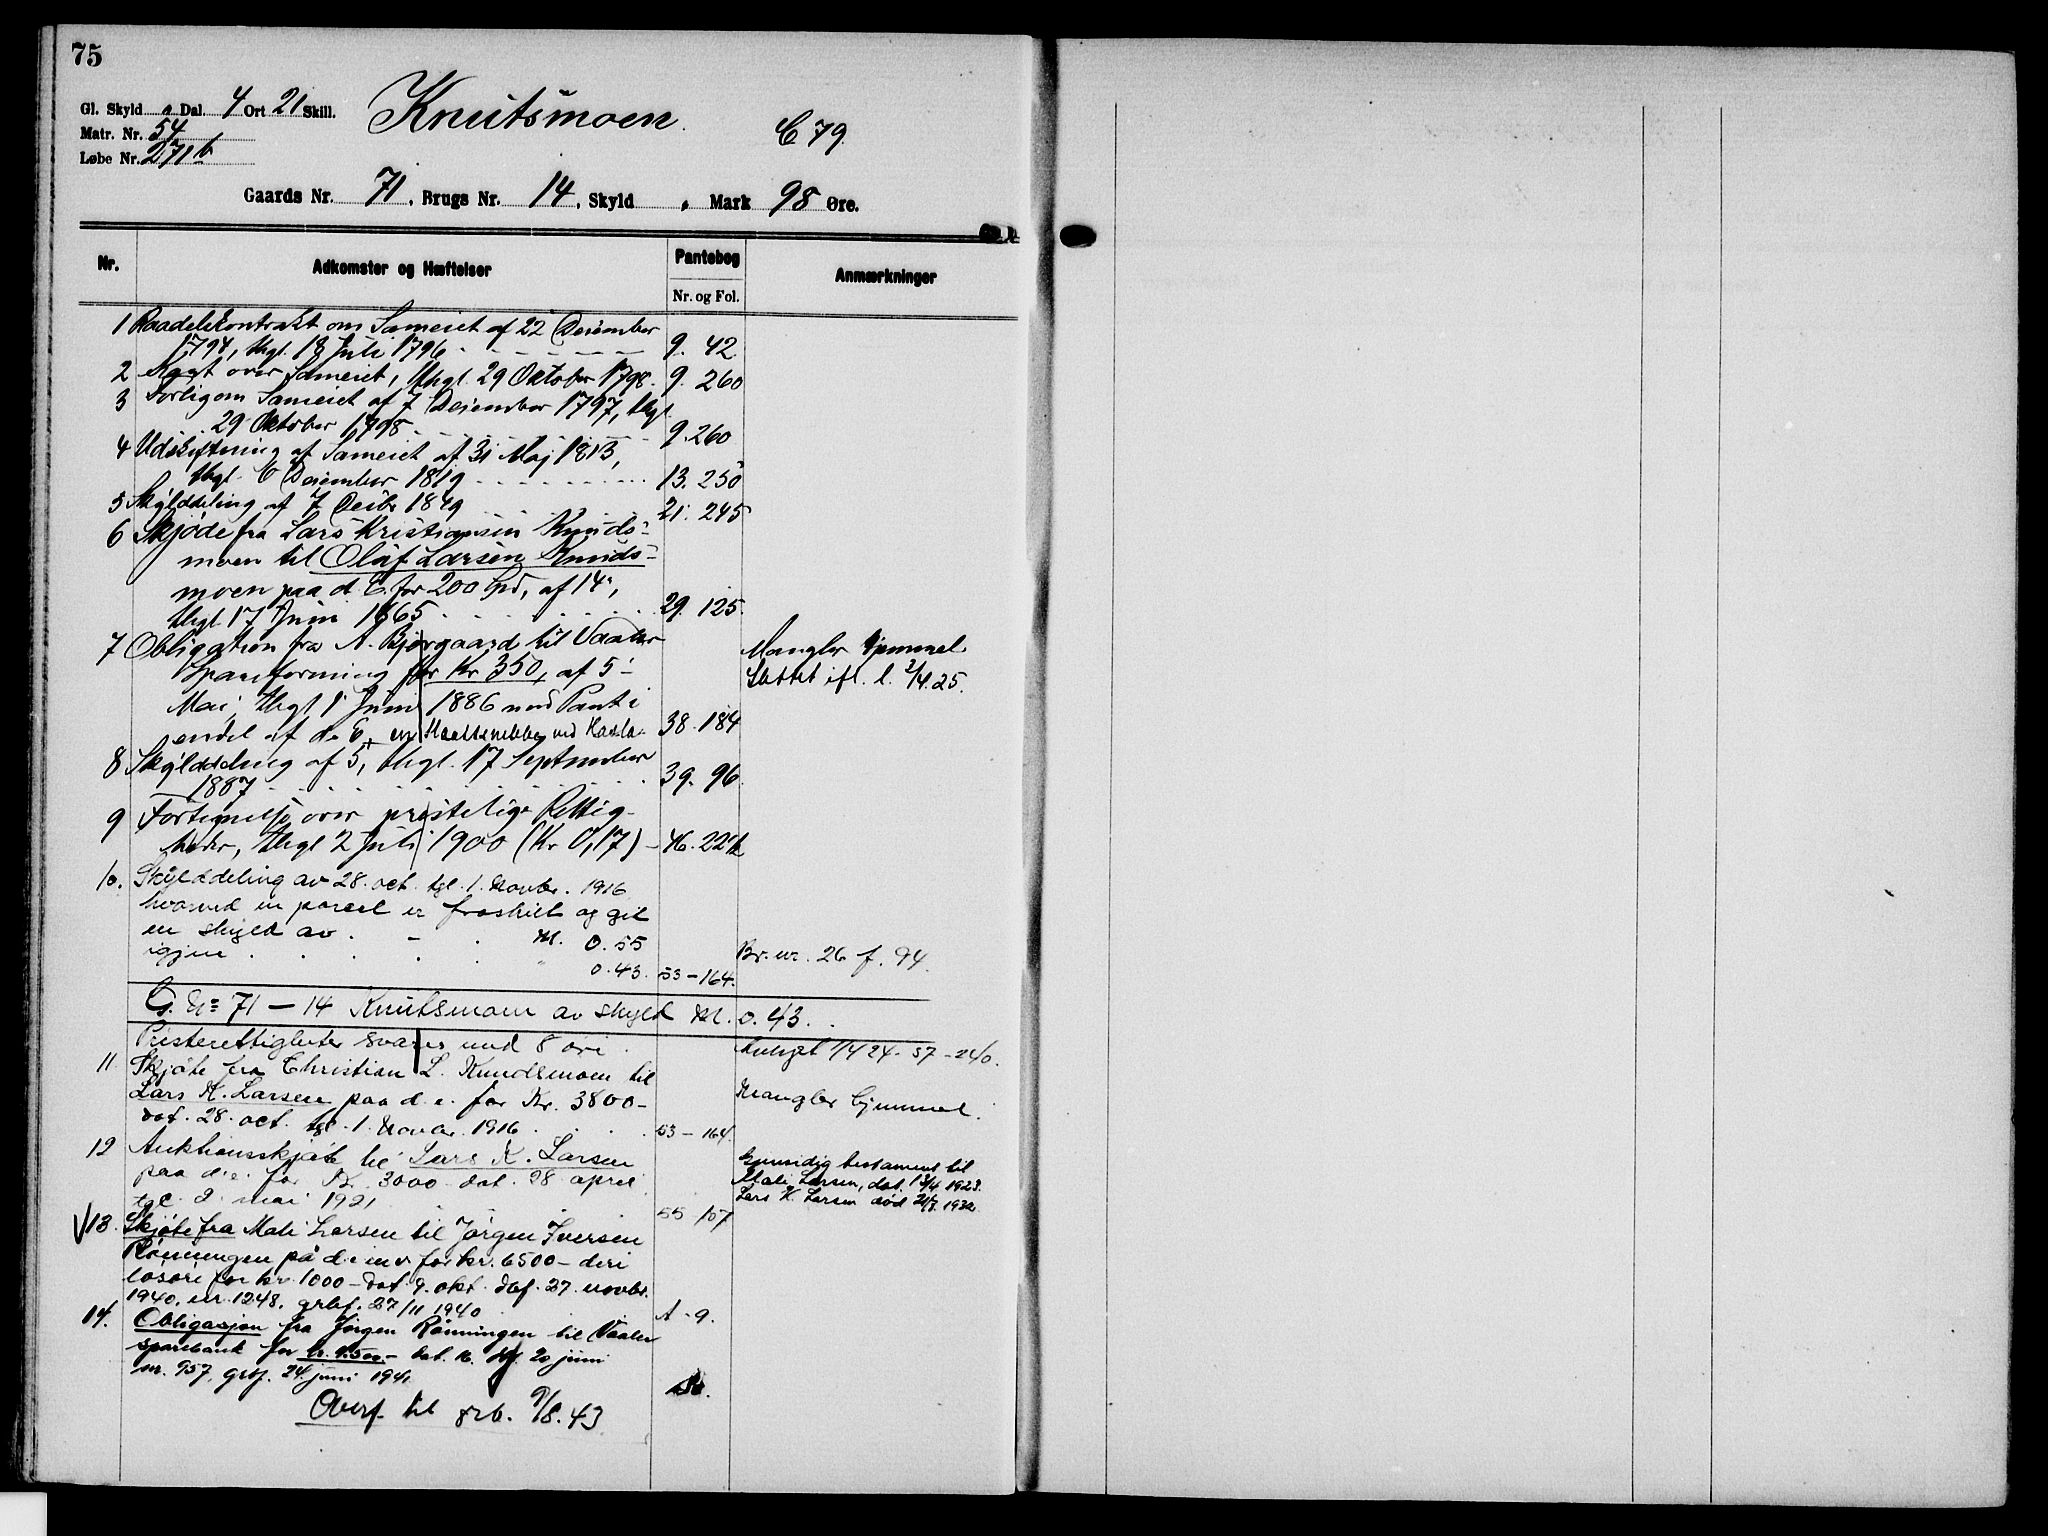 75
Gl. Skyld „ Dal. 4 Ort 21 Skill.
Knutsmoen.
C 79.
Matr. Nr. 54
Løbe Nr. 271 b
Gaards Nr. 71, Brugs Nr. 14, Skyld „ Mark 98 Øre.
Nr. Adkomster og Hæftelser Pantebog Anmærkninger
Nr. og Fol.
1 Raadelskontrakt om Sameiet af 22 Desember
1794, thgl. 18 Juli 1796 9. 42.
2 over Sameiet, thgl. 29 Oktober 1798. 9. 260
3 Forlig om Sameiet af 7 Desember 1797, thgl.
29 Oktober 1798 9. 260
4 Udskiftning af Sameiet af 31 Maj 1813,
thgl. 6 Desember 1819 13. 250
5 Skylddeling af 7 Desbr 1849 21. 245
6 Skjøde fra Lars Kristiansen Knuds-
moen til Olaf Larsen Knuds-
moen paa d. E. for 200 Spd, af 14,
thgl. 17 Juni 1865 29. 125.
7 Obligation fra A. Bjørgaard til Vaaler
Spareforening for Kr 350, af 5
Mai, thgl 1 Juni 1886 med Pant i
endel af d. E, ved 38. 184
Mangler Hjemmel.
Slettet ifl. l. 2/4.25.
8 Skylddeling af 5, thgl. 17 September
1887 39. 96.
9 Fortegnelse over prestelige Rettig-
heder, thgl 2 Juli 1900 (Kr 0,17)
10. Skylddeling av 28. oct. tgl. 1. Novbr. 1916
hvorved en parcel er fraskilt og git
en skyld av . - . M. 0.55
igjen . . . . " 0.43. 53-164.
Br. nr. 26 f. 94.
G. No 71 - 14 Knutsmoen av skyld M. 0.43.
Presterettigheter svares med 8 øre.
Avløst 1/4 24. 57-240.
11. Skjøte fra Christian L. Knudsmoen til
Lars K. Larsen paa d. e. for Kr. 3800-
dat. 28. oct. tgl. 1. Novbr. 1916 53-164.
Mangler hjemmel.
12 Auktionsskjøte til Lars K. Larsen
paa d. e. for Kr. 3000 dat. 28 april
tgl. 2. mai 1921 55-107
Gjensidig testament til
Mali Larsen, dat. 13/4 1923.
Lars K. Larsen død 21/7. 1932.
√13. Skjøte fra Mali Larsen til Jørgen Iversen
Rønningen på d. e. m. v. for kr. 6500- deri
løsøre for kr. 1000- dat. 9. okt. dbf. 27. novbr.
1940. nr. 1248. grbf. 27/11 1940 A-9.
14. Obligasjon fra Jørgen Rønningen til Vaaler
sparebank for dat. 16. dbf. 20 juni
nr. 957, grbf. 24. juni 1941
Overf. til grb. 9/8.43